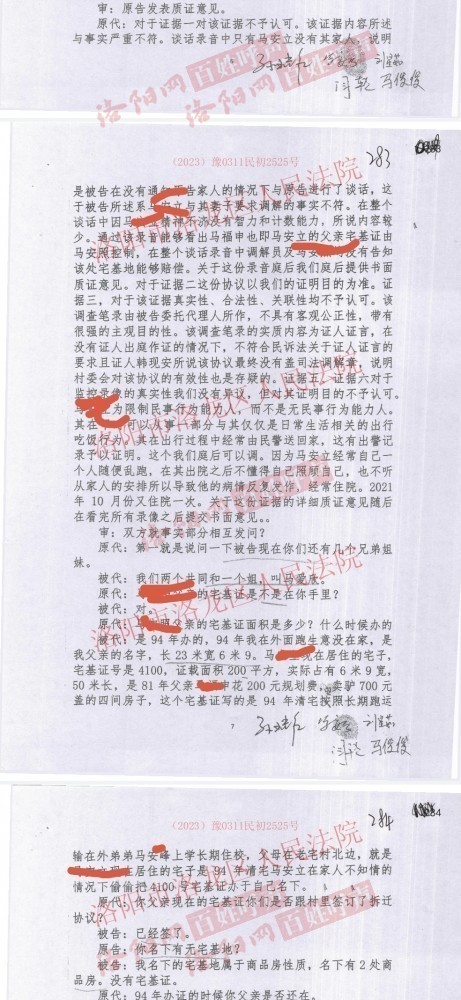 审：原告发表质证意见。
原代：对于证据一对该证据不予认可。该证据内容所述
与事实严重不符。谈话录音中只有马安立没有其家人。说明
洛阳网 百姓呼声
(2023) 豫0311民初2525号
283
是被告在没有通知原告家人的情况下与原告进行了谈话，这
于被告所述系马安立与其妻子要求调解的事实不符。在整个
谈话中因马安立精神状况没有智力和计数能力，所说内容较
少。通过该录音能够看出马福申也即马安立的父亲宅基证由
马安照控制，在整个谈话录音中调解员及马安照均没有告知
该处宅基地能够赔偿。关于这份录音庭后我们庭后提供书面
质证意见。对于证据二这份协议以我们的证明目的为准。证
据三，对于该证据真实性、合法性、关联性均不予认可。该
调查笔录由被告委托代理人所作，不具有客观公正性，带有
很强的主观目的性。该调查笔录的实质内容为证人证言，在
没有证人出庭作证的情况下，不符合民诉法关于证人证言的
要求且证人韩现安所说该协议最终没有盖司法调解章，说明
村委会对该协议的有效性也是存疑的。证据五，证据六对于
监控录像的真实性我们没有异议，但对其证明目的不予认可。
为限制民事行为能力人，而不是无民事行为能力人。
其在 可以从事一部分与其仅仅是日常生活相关的出行
吃饭行为。其在出行过程中经常由民警送回家，这有出警记
录予以证明。这个我们庭后可以调。因为马安立经常自己一
个人随便乱跑，在其出院之后不懂得自己照顾自己，也不听
从家人的安排所以导致他的病情反复发作，经常住院。2021
年 10 月份又住院一次。关于这份证据的详细质证意见随后
在看完所有录像之后提交书面意见。。
审：双方就事实部分相互发问？
原代：第一就是说问一下被告现在你们还有几个兄弟姐
妹。
被代：我们两个共同和一个姐，叫马爱欣。
原代： 的宅基证是不是在你手里？
被代：对。
原代： 父亲的宅基证面积是多少？什么时候办的
被代：是 94 年办的，94 年我在外面跑生意没在家，是
我父亲的名字，长 23 米宽 6 米 9。马 现在居住的宅子，
宅基证号是 4100，证载面积 200 平方，实际占有 6 米 9 宽，
50 米长，是 81 年父亲 申花 200 元规划费，卖驴 700 元
盖的四间房子，这个宅基证写的是 94 年清宅按照长期跑运
洛阳市洛龙区人民法院
(2023) 豫0311民初2525号
284
输在外弟弟马安峰上学长期住校，父母在老宅村北边，就是
居住的宅子是 94 年清宅马安立在家人不知情的
情况下偷偷把 4100 号宅基证办于自己名下。
原代：你父亲现在的宅基证你们是否跟村里签订了拆迁
协议？
被告：已经签了。
原告：你名下有无宅基地？
被告：我名下的宅基地属于商品房性质，名下有 2 处商
品房。没有宅基证。
原代：94 年办证的时候你父亲是否还在。